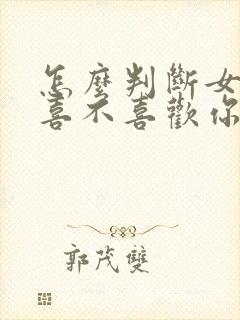 怎麼判斷女
喜不喜歡你
郭茂雙